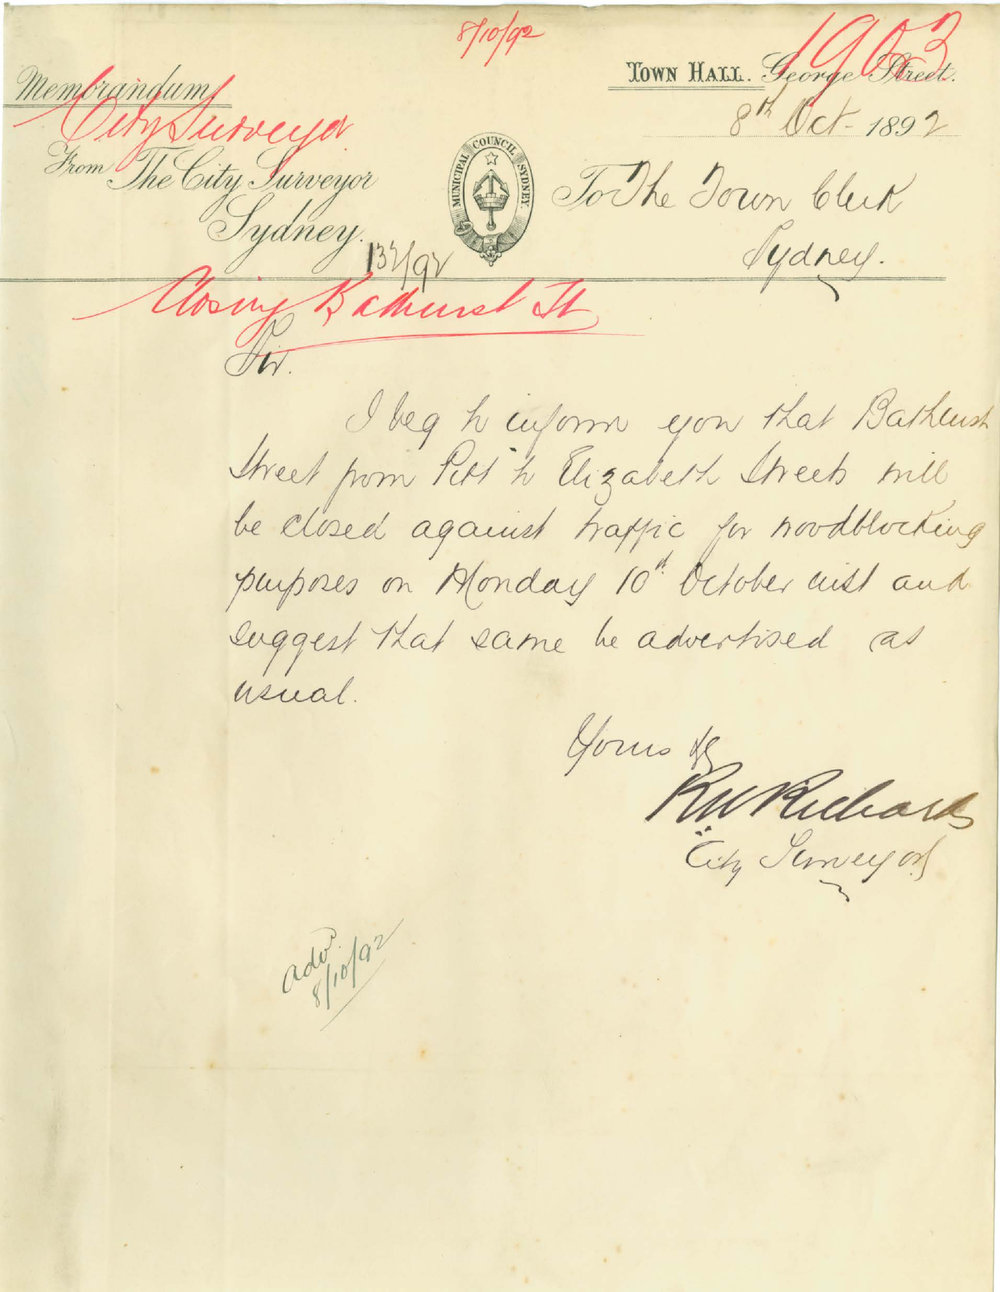 8/10/92
1903
Town Hall. George Street.
Memorandum
City Surveyor
8th Oct- 1892
From The City Surveyor
Sydney.
MUNICIPAL COUNCIL SYDNEY.
To The Town Clerk
Sydney.
132/92
Closing Bathurst St
Sir.
I beg to inform you that Bathurst
Street from Pitt to Elizabeth Streets will
be closed against traffic for woodblocking
purposes on Monday 10th October inst and
suggest that same be advertised as
usual.
Yours &c
RW Richards
City Surveyor
Advd.
8/10/92